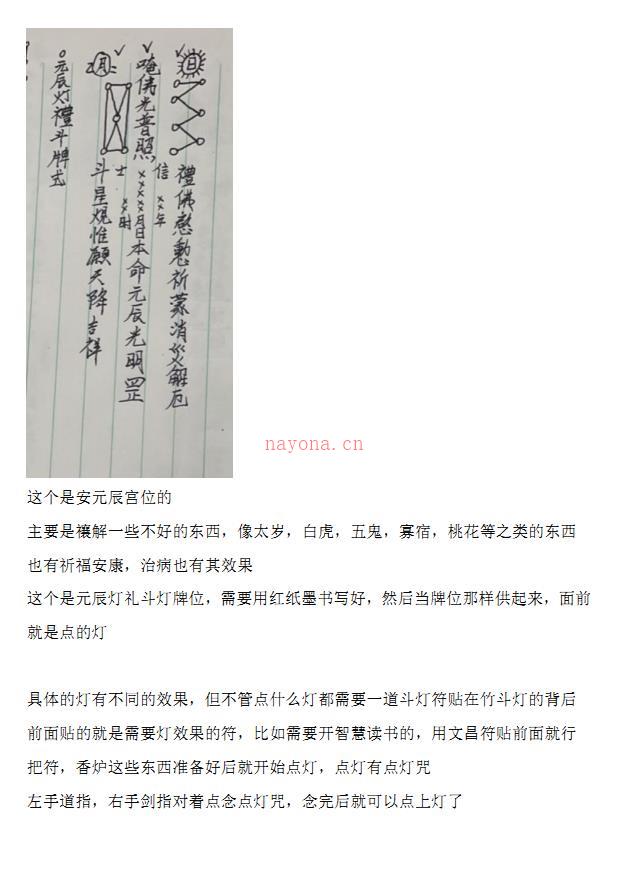 日
禮佛慇懃祈蒙消災解厄
唵佛光普照
信士
××年××月××日××时
本命元辰光明罡
月
斗星煌惟願天降吉祥
元辰灯禮斗牌式
nayona.cn
这个是安元辰宫位的
主要是禳解一些不好的东西，像太岁，白虎，五鬼，寡宿，桃花等之类的东西
也有祈福安康，治病也有其效果
这个是元辰灯礼斗灯牌位，需要用红纸墨书写好，然后当牌位那样供起来，面前
就是点的灯
具体的灯有不同的效果，但不管点什么灯都需要一道斗灯符贴在竹斗灯的背后
前面贴的就是需要灯效果的符，比如需要开智慧读书的，用文昌符贴前面就行
把符，香炉这些东西准备好后就开始点灯，点灯有点灯咒
左手道指，右手剑指对着点念点灯咒，念完后就可以点上灯了